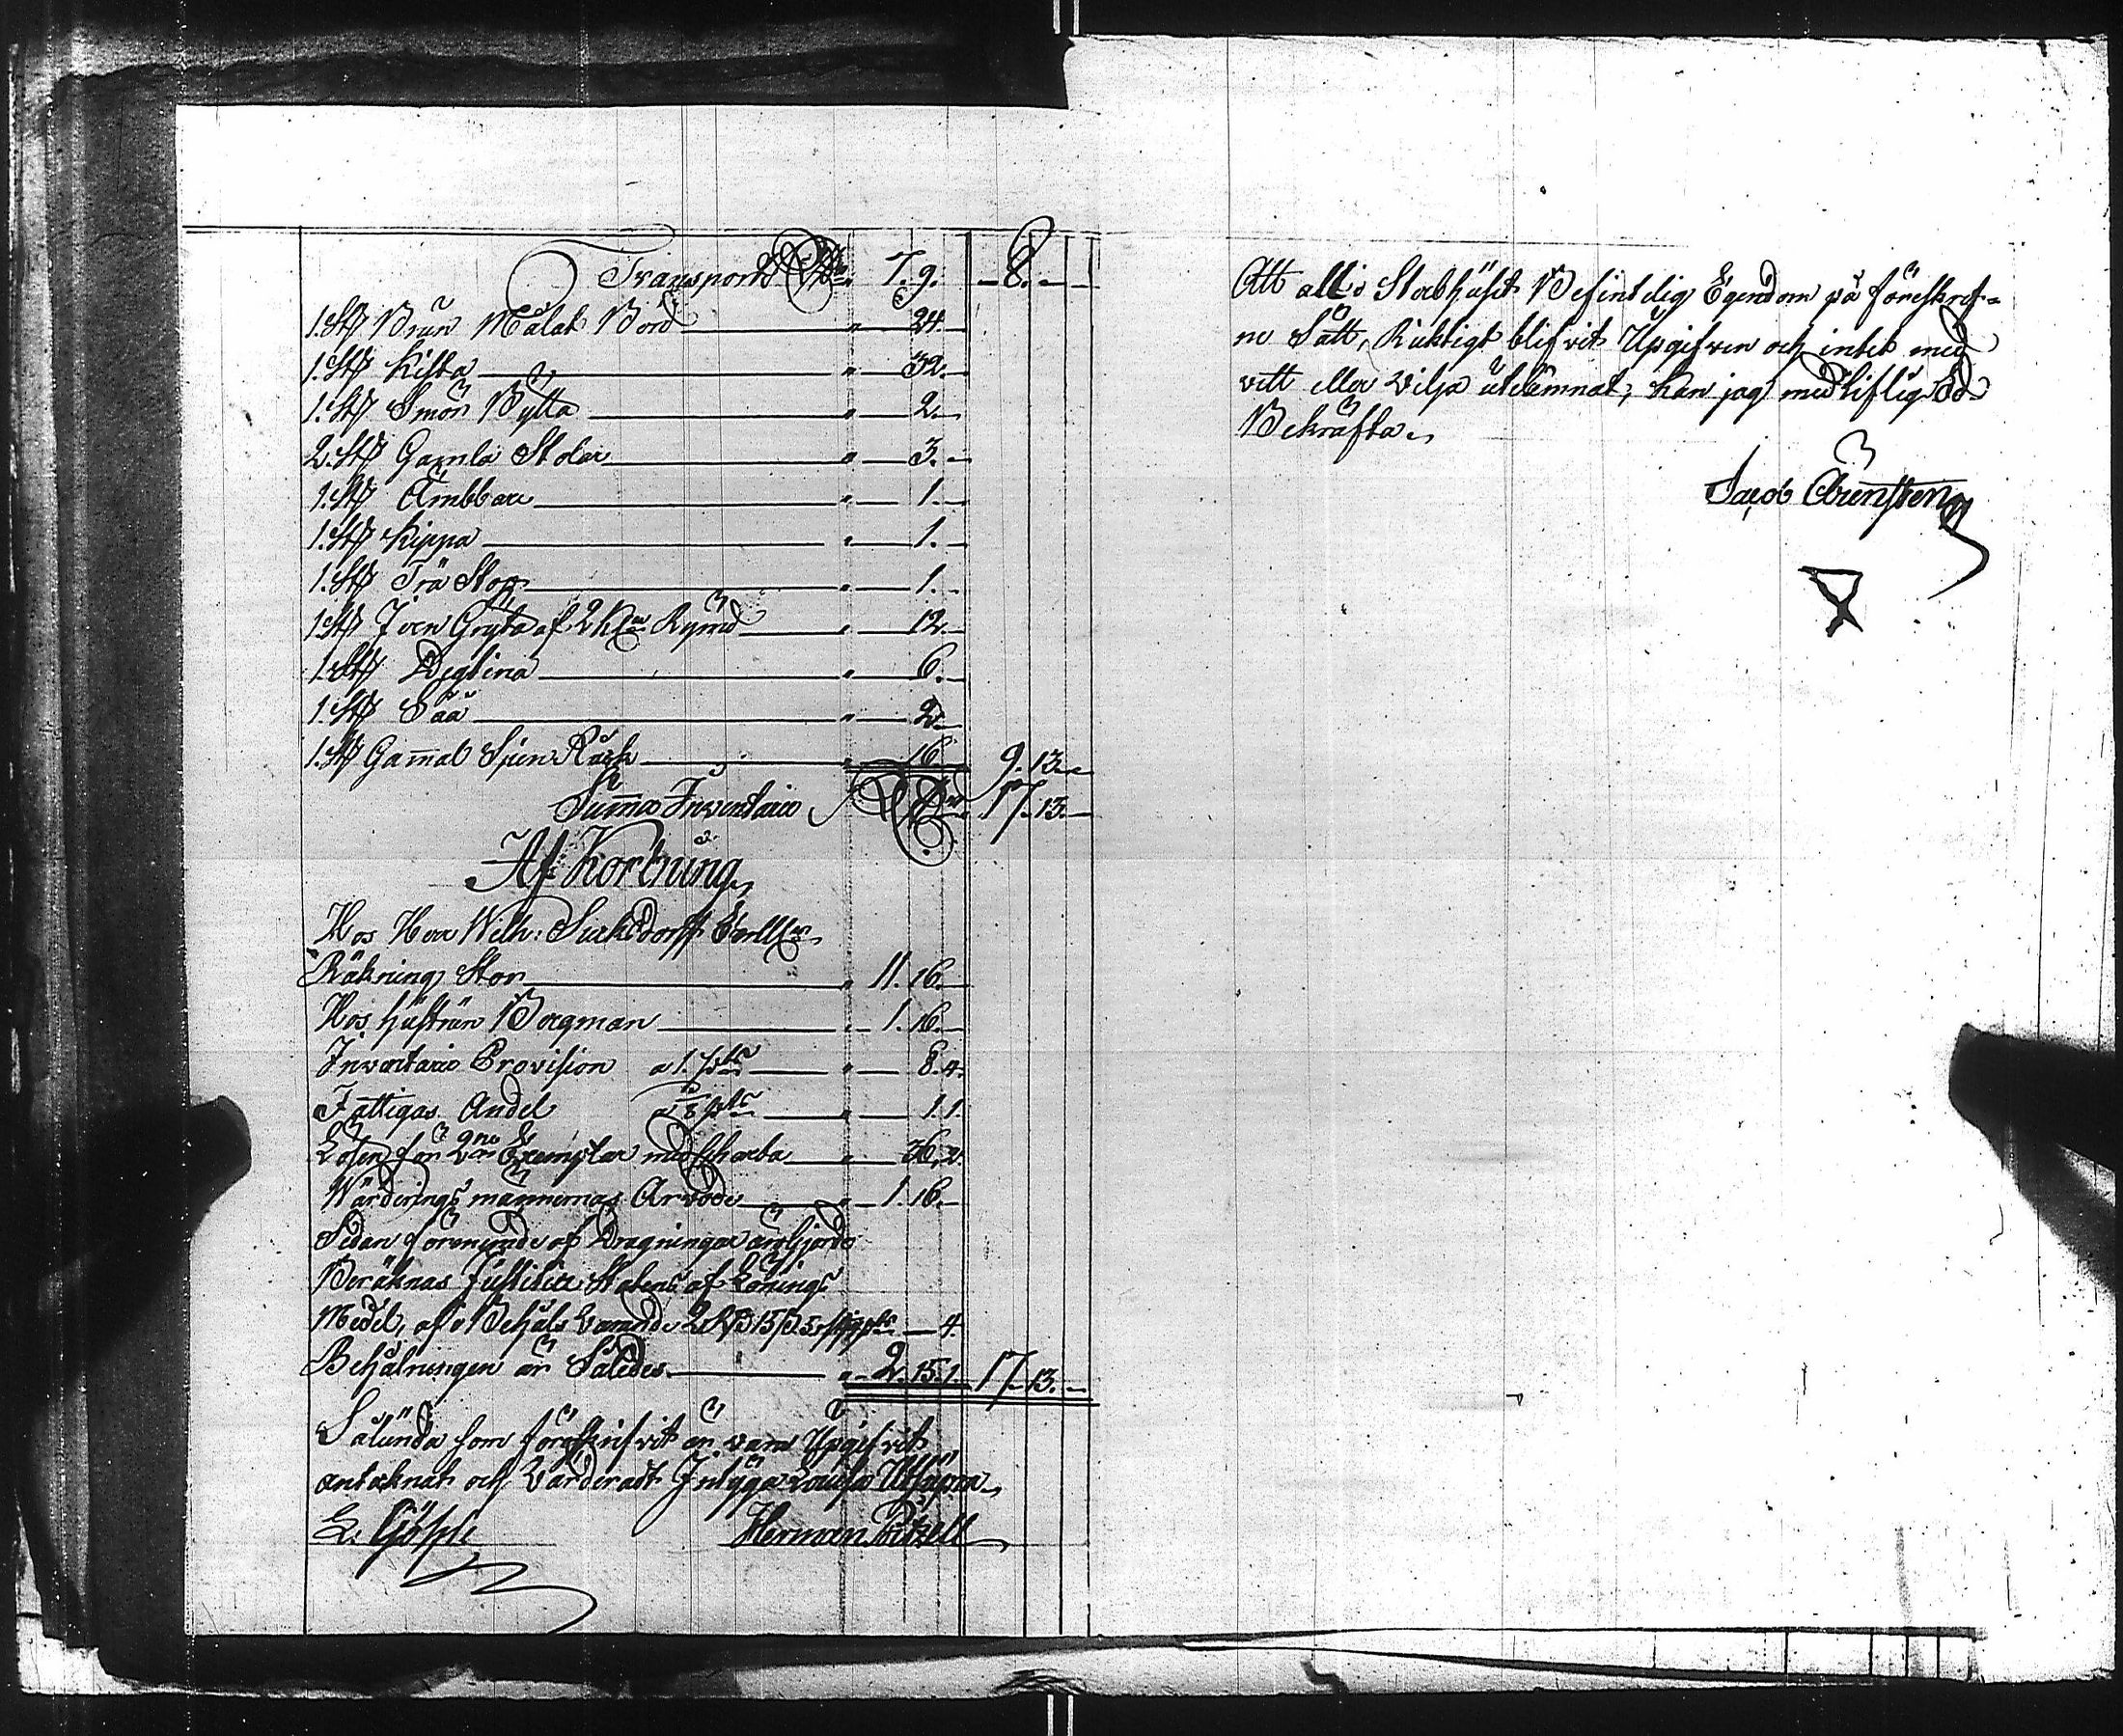 Transport Rd 7. 9. — 8. —
1. St Brun Målat Bord — " — 24. —
1. St Kista — " — 32. —
1. St Smör Bytta — " — 2. —
2. St Gamla Stolar — " — 3. —
1. St Ämbbare — " — 1. —
1. St Kippa — " — 1. —
1. St Trä Stop — " — 1. —
1. St Jern Gryta af 2 Kr Rymd — " — 12. —
1. St Degtina — " — 6. —
1. St Såå — " — 2. —
1. St Gamal Spen Råck — " — 16. 9. 13. —
Summa Inventarii Rd 17. 13. —
Af Kortning
Hos Herr Wilh: Sucksdorff Enll
Räkning Stor — " 11. 16. —
Hos hustrun Borgman — " 1. 16. —
Inventarii Provision a 1. Pct — " — 8. 4.
Fattigas Andel a 1/8 Pct — " — 1. 1.
Lösen för 2ne Exemplar med Charta — " — 36. 2.
Wärderings männernas Arvode — " — 1. 16. —
Sedan förenemnde af Dragningar ärogjorde
Beräknas Justitiæ Statens aflönings
Medel, af Behåls varande 2 Rd 15 s 5 — 4.
Behålningen är Således — " 2. 15. 1. 17. 13. —
Sålunda som föreskrifvit är vara Upgifvit
antecknat och Värderadt Intyga Lovisa Utsupra
E. Göhle Herman Pikell
Att all i Sterbhuset Befintelig Egendom på föreskref=
ne Sätt, Ricktigt blifvit Upgifven och intet med
vett eller vilja utelämnat, kan jag med liflig Ed
Bekräfta.
Jacob